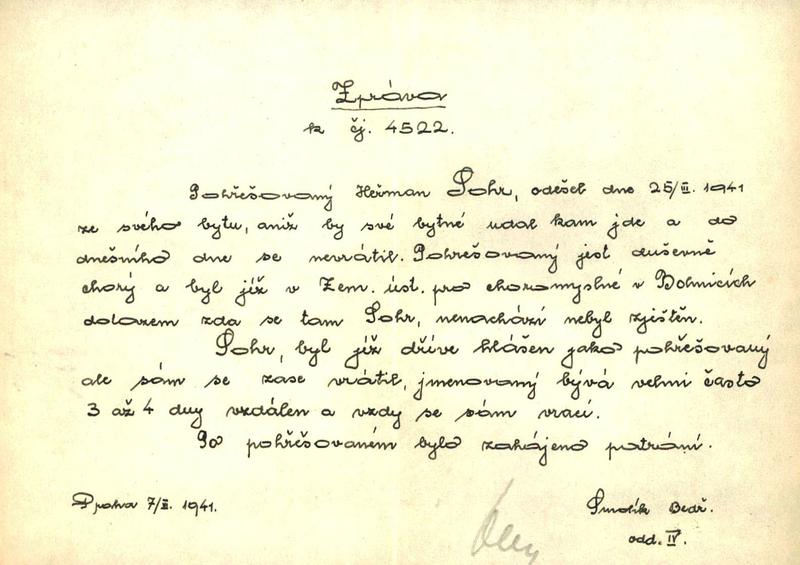 Zpráva
k čj. 4522.
Pohřešovaný Heřman Sohr, odešel dne 25/II. 1941
ze svého bytu, aniž by své bytné udal kam jde a do
dnešního dne se nevrátil. Pohřešovaný jest duševně
chorý a byl již v Zem. úst. pro choromyslné v Bohnicích
dotazem zda se tam Sohr, nenachází nebyl zjištěn.
Sohr, byl již dříve hlášen jako pohřešovaný
ale sám se zase vrátil, jmenovaný bývá velmi často
3 až 4 dny vzdálen a vždy se sám vrací.
Po pohřešovaném bylo zahájeno pátrání.
Praha 7/III. 1941.
Smolík Bedř.
odd. IV.